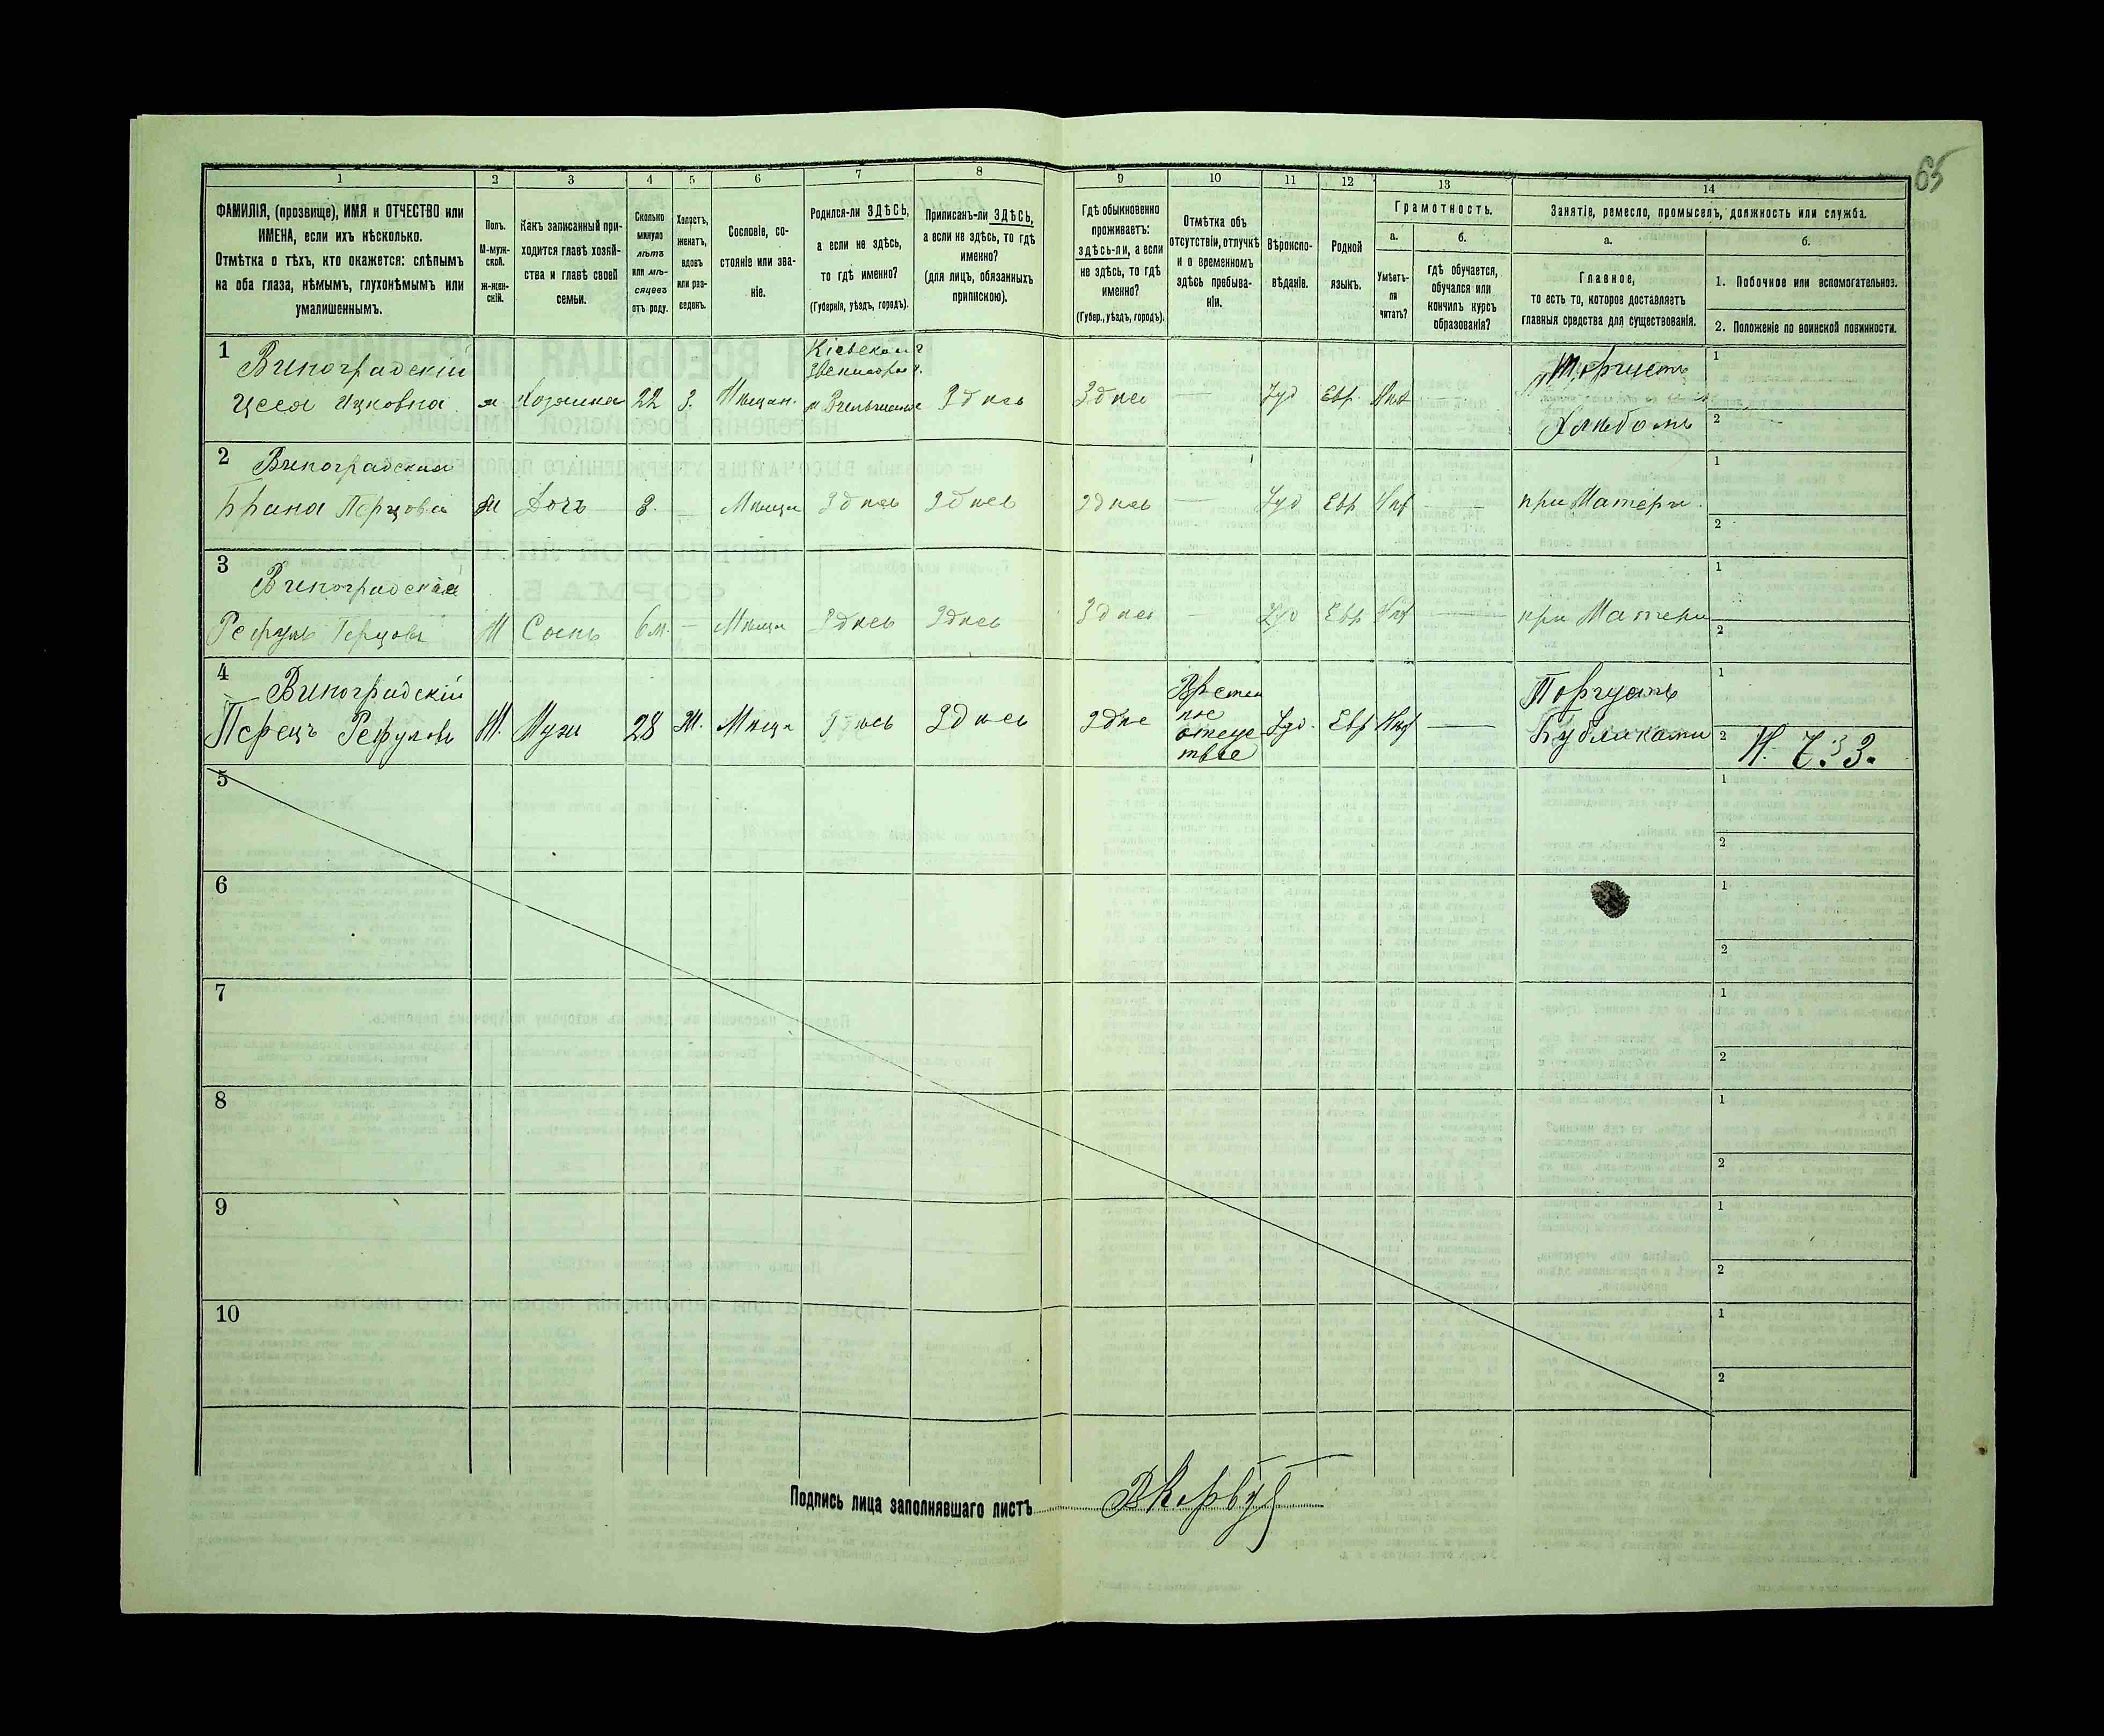 65
1 2 3 4 5 6 7 8 9 10 11 12 13 14
ФАМИЛІЯ, (прозвище), ИМЯ и ОТЧЕСТВО или
ИМЕНА, если ихъ нѣсколько.
Отмѣтка о тѣхъ, кто окажется: слѣпымъ
на оба глаза, нѣмымъ, глухонѣмымъ или
умалишеннымъ.
Полъ.
М-муж-
ской.
Ж-жен-
скій.
Какъ записанный при-
ходится главѣ хозяй-
ства и главѣ своей
семьи.
Сколько
минуло
лѣтъ
или мѣ-
сяцевъ
отъ роду.
Холостъ,
женатъ,
вдовъ
или раз-
веденъ.
Сословіе, со-
стояніе или зва-
ніе.
Родился-ли ЗДѢСЬ,
а если не здѣсь,
то гдѣ именно?
(Губернія, уѣздъ, городъ).
Приписанъ-ли ЗДѢСЬ,
а если не здѣсь, то гдѣ
именно?
(для лицъ, обязанныхъ
припискою).
Гдѣ обыкновенно
проживаетъ:
здѣсь-ли, а если
не здѣсь, то гдѣ
именно?
(Губер., уѣздъ, городъ).
Отмѣтка объ
отсутствіи, отлучкѣ
и о временномъ
здѣсь пребыва-
ніи.
Вѣроиспо-
вѣданіе.
Родной
языкъ.
Грамотность.
а.
Умѣетъ-
ли
читать?
б.
гдѣ обучается,
обучался или
кончилъ курсъ
образованія?
Занятіе, ремесло, промыселъ, должность или служба.
а.
Главное,
то есть то, которое доставляетъ
главныя средства для существованія.
б.
1. Побочное или вспомогательное.
2. Положеніе по воинской повинности.
1 Виноградскій
Цеся Ицковна
ж Хозяйка 22 З. Мѣщан.
Кіевской г
Звенигород.
Здѣсь Здѣсь — Іуд Евр Нѣт —
Торгуетъ
Хлѣбомъ
1
2
2 Виноградская
Брана Перцова ж Дочь 3. — Мѣща Здѣсь Здѣсь Здѣсь — Іуд Евр Нѣт — при Матери
1
2
3 Виноградскій
М Сынъ 6 м. — Мѣща Здѣсь Здѣсь Здѣсь — Іуд Евр Нѣт — при Матери
1
2
4 Виноградскій
Перецъ Рефулов М. Мужъ 28 Ж. Мѣща Здѣсь Здѣсь Здѣс
Времен
ное
отсус
твіе
Іуд. Евр Нѣт —
Торгуетъ
Бубликами
1
2
5
1
2
6
1
2
7
1
2
8
1
2
9
1
2
10
1
2
Подпись лица заполнявшаго листъ